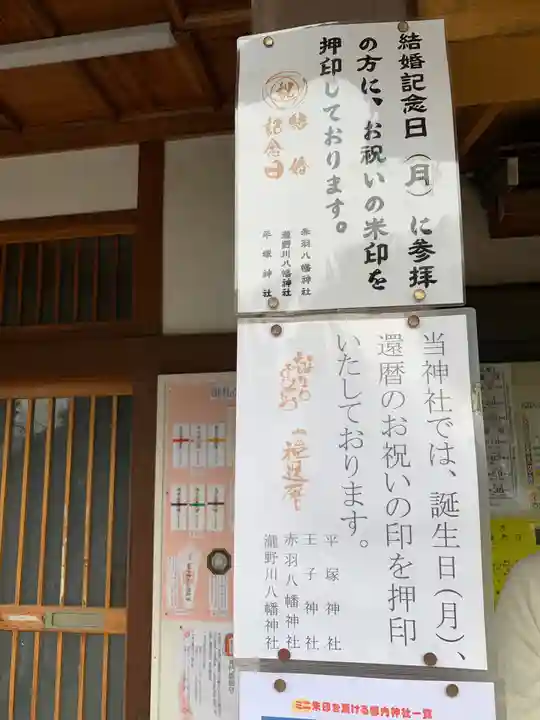 結婚記念日(月)に参拝
の方に、お祝いの朱印を
押印しております。
祝
結婚
記念日
赤羽八幡神社
瀧野川八幡神社
平塚神社
当神社では、誕生日(月)、
還暦のお祝いの印を押印
いたしております。
平塚神社
王子神社
赤羽八幡神社
瀧野川八幡神社
ミニ朱印を頂ける都内神社一覧